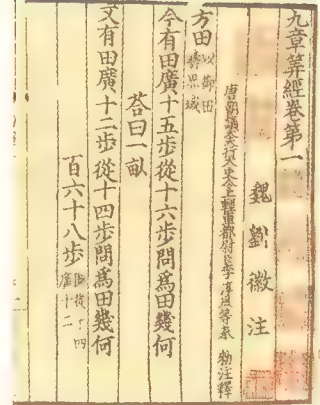 九章筭經卷第一
魏劉徽注
唐朝議大夫行太史令上輕車都尉臣李淳風等奉 勑注釋
方田以御田疇界域
今有田廣十五步從十六步問爲田幾何
荅曰一畝
又有田廣十二步從十四步問爲田幾何
百六十八步
廣十二